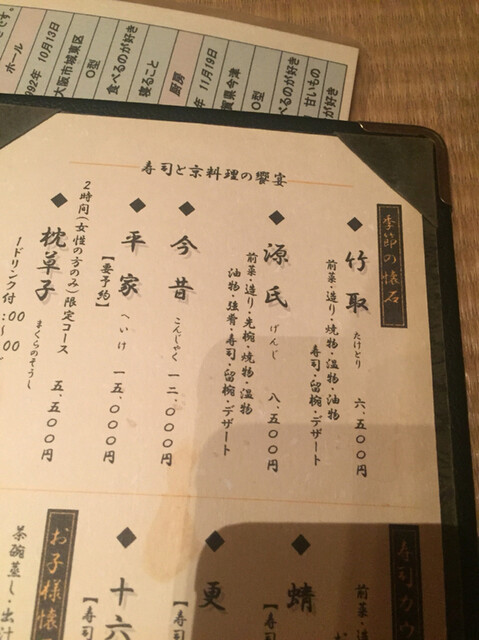 ホール
992年 10月13日
大阪市城東区
O型
食べるのが好き
寝ること
厨房
年 11月19日
賀県今津
O型
べるのが好き
甘いもの
が好き
寿司と京料理の饗宴
季節の懐石
◆竹取 たけとり 六、五〇〇円
前菜・造り・焼物・温物・油物
寿司・留椀・デザート
◆源氏 げんじ 八、五〇〇円
前菜・造り・光椀・焼物・温物
油物・強肴・寿司・留椀・デザート
◆今昔 こんじゃく 一二、〇〇〇円
◆平家 へいけ 一五、〇〇〇円
【要予約】
2時間(女性の方のみ)限定コース
◆枕草子 まくらのそうし 五、五〇〇円
1ドリンク付
:00
〜:00
寿司カウ
前菜・造
◆蜻
【寿司
◆更
【寿
◆十六
【寿司
お子様懐
茶碗蒸し・出汁